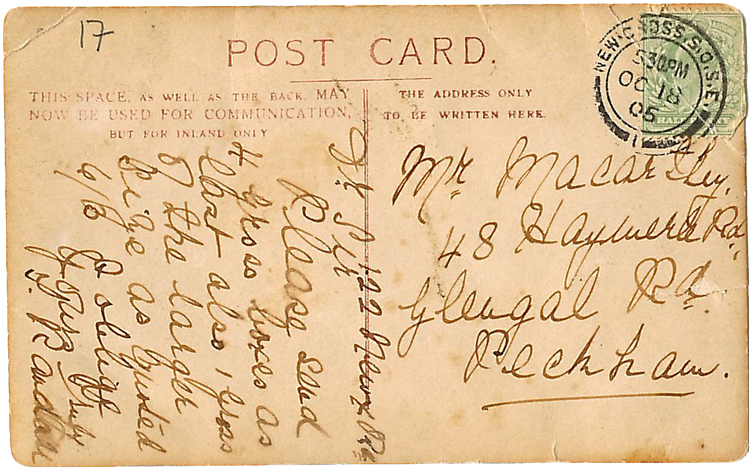 17
POST CARD.
THIS SPACE, AS WELL AS THE BACK, MAY
NOW BE USED FOR COMMUNICATION,
BUT FOR INLAND ONLY
THE ADDRESS ONLY
TO BE WRITTEN HERE.
NEW CROSS S.O.S.E.
5.30PM
OC 18
05
HALF
Mr Macartney,
48 Hayward Rd,
Glengal Rd.
Peckham.
122 New X Rd
Dr Sir
Please send
4 gross boxes as
last also 1 gross
of the larger
size as quoted
6/3 & oblige
Yrs Truly